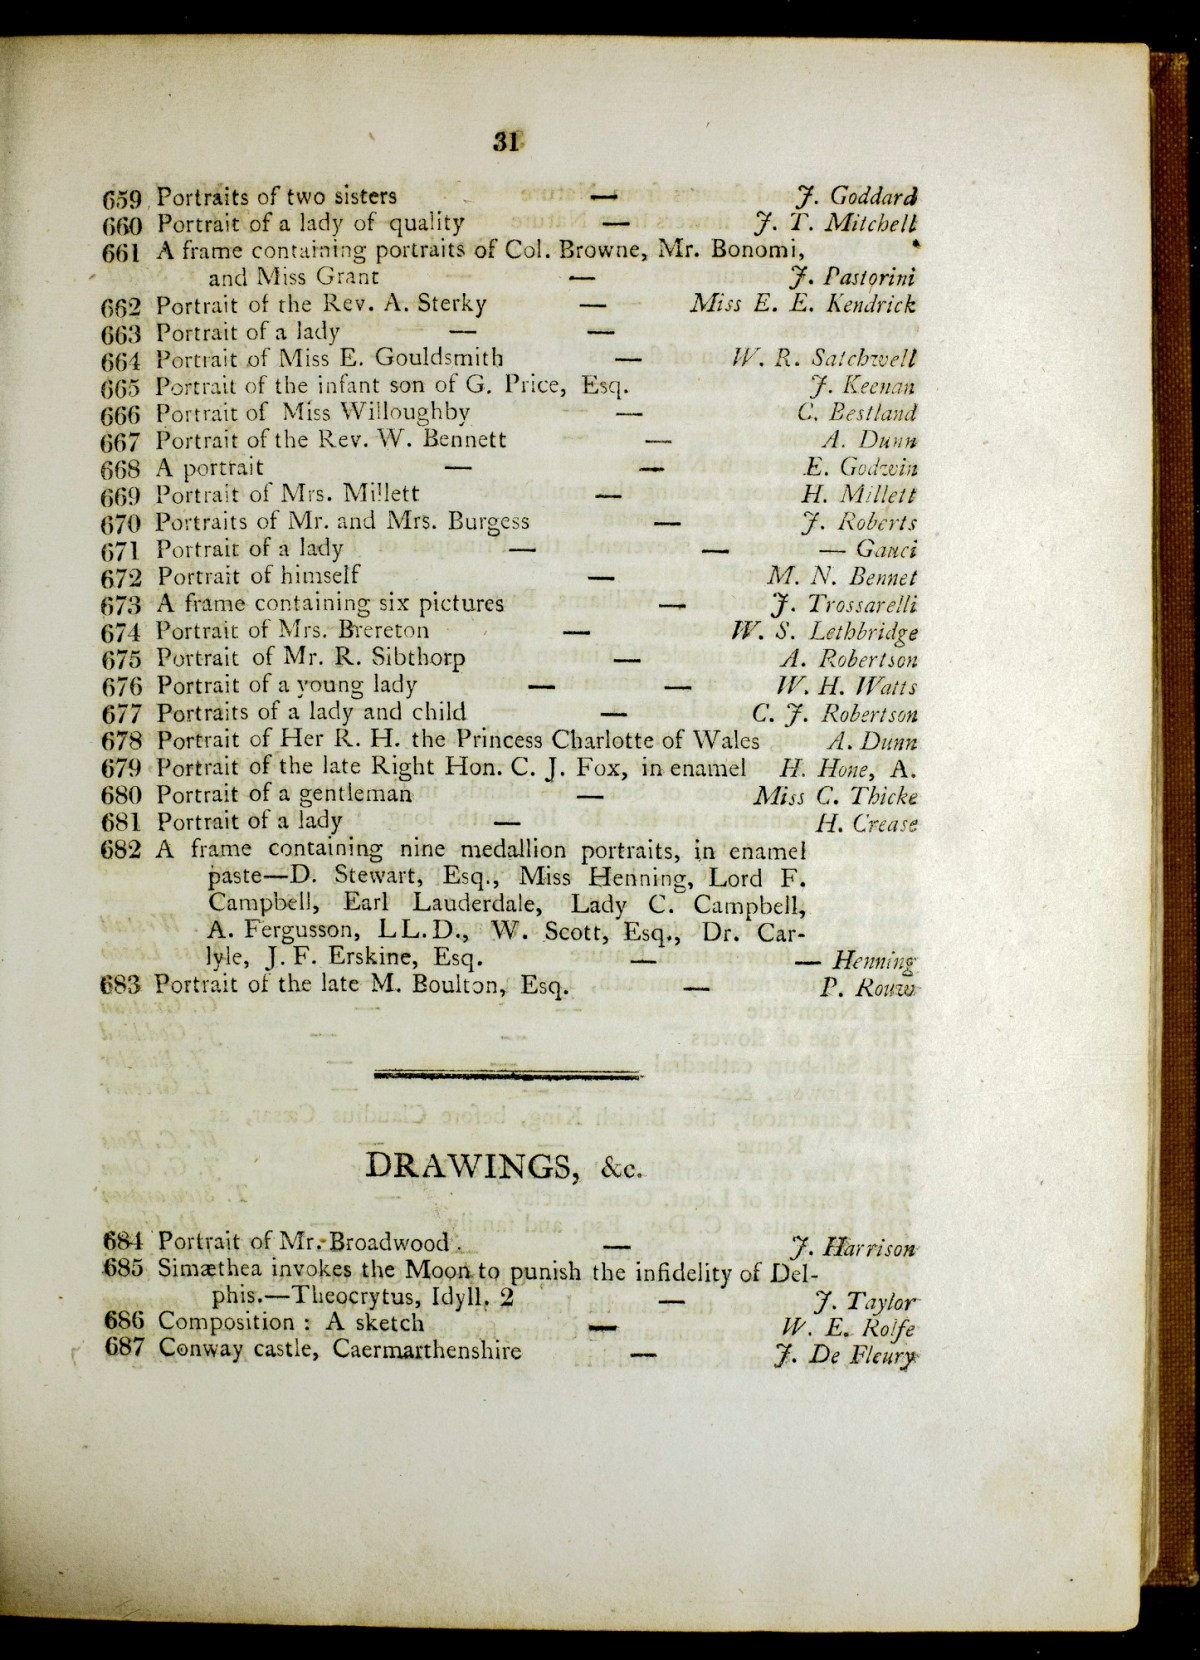 31
659 Portraits of two sisters — J. Goddard
660 Portrait of a lady of quality — J. T. Mitchell
661 A frame containing portraits of Col. Browne, Mr. Bonomi,
and Miss Grant — J. Pastorini
662 Portrait of the Rev. A. Sterky — Miss E. E. Kendrick
663 Portrait of a lady — —
664 Portrait of Miss E. Gouldsmith — W. R. Satchwell
665 Portrait of the infant son of G. Price, Esq. J. Keenan
666 Portrait of Miss Willoughby — C. Bestland
667 Portrait of the Rev. W. Bennett — A. Dunn
668 A portrait — — E. Godwin
669 Portrait of Mrs. Millett — H. Millett
670 Portraits of Mr. and Mrs. Burgess — J. Roberts
671 Portrait of a lady — — — Gauci
672 Portrait of himself — M. N. Bennet
673 A frame containing six pictures — J. Trossarelli
674 Portrait of Mrs. Brereton — W. S. Lethbridge
675 Portrait of Mr. R. Sibthorp — A. Robertson
676 Portrait of a young lady — — W. H. Watts
677 Portraits of a lady and child — C. J. Robertson
678 Portrait of Her R. H. the Princess Charlotte of Wales A. Dunn
679 Portrait of the late Right Hon. C. J. Fox, in enamel H. Hone, A.
680 Portrait of a gentleman — Miss C. Thicke
681 Portrait of a lady — H. Crease
682 A frame containing nine medallion portraits, in enamel
paste—D. Stewart, Esq., Miss Henning, Lord F.
Campbell, Earl Lauderdale, Lady C. Campbell,
A. Fergusson, LL.D., W. Scott, Esq., Dr. Car-
lyle, J. F. Erskine, Esq. — — Henning
683 Portrait of the late M. Boulton, Esq. — P. Rouw
DRAWINGS, &c.
684 Portrait of Mr. Broadwood. — J. Harrison
685 Simæthea invokes the Moon to punish the infidelity of Del-
phis.—Theocrytus, Idyll. 2 — J. Taylor
686 Composition : A sketch — W. E. Rolfe
687 Conway castle, Caermarthenshire — J. De Fleury